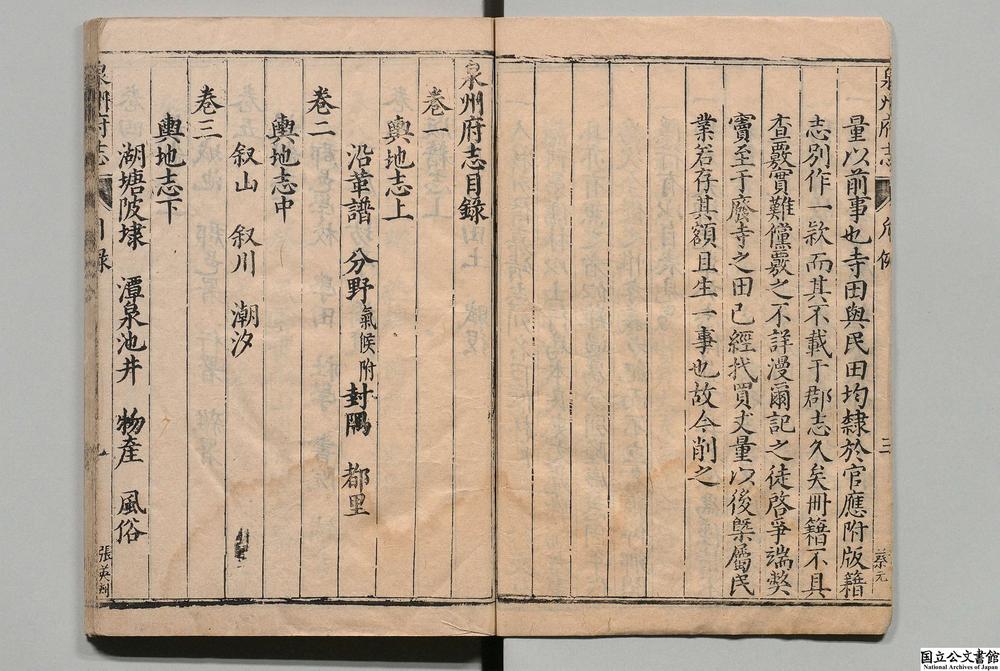 量以前事也寺田與民田均隸於官應附版籍
志別作一欵而其不載于郡志久矣冊籍不具
查覈實難儻覈之不詳漫爾記之徒啓爭端獘
竇至于廢寺之田已經找買丈量以後槩屬民
業若存其額且生一事也故今削之
泉州府志
凡例
三
蔡元
泉州府志目錄
卷一
輿地志上
沿革譜 分野氣候附 封隅 都里
卷二
輿地志中
叙山 叙川 潮汐
卷三
輿地志下
湖塘陂埭 潭泉池井 物產 風俗
泉州府志
目錄
張英
国立公文書館
National Archives of Japan